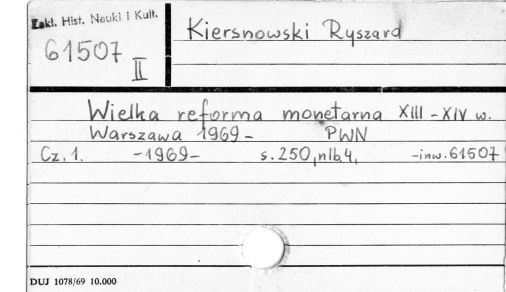 Zakł. Hist. Nauki i Kult.
61507
II
Kiersnowski Ryszard
Wielka reforma monetarna XIII-XIV w.
Warszawa 1969- PWN
Cz. 1. -1969- s. 250, nlb. 4, -inw. 61507
DUJ 1078/69 10.000